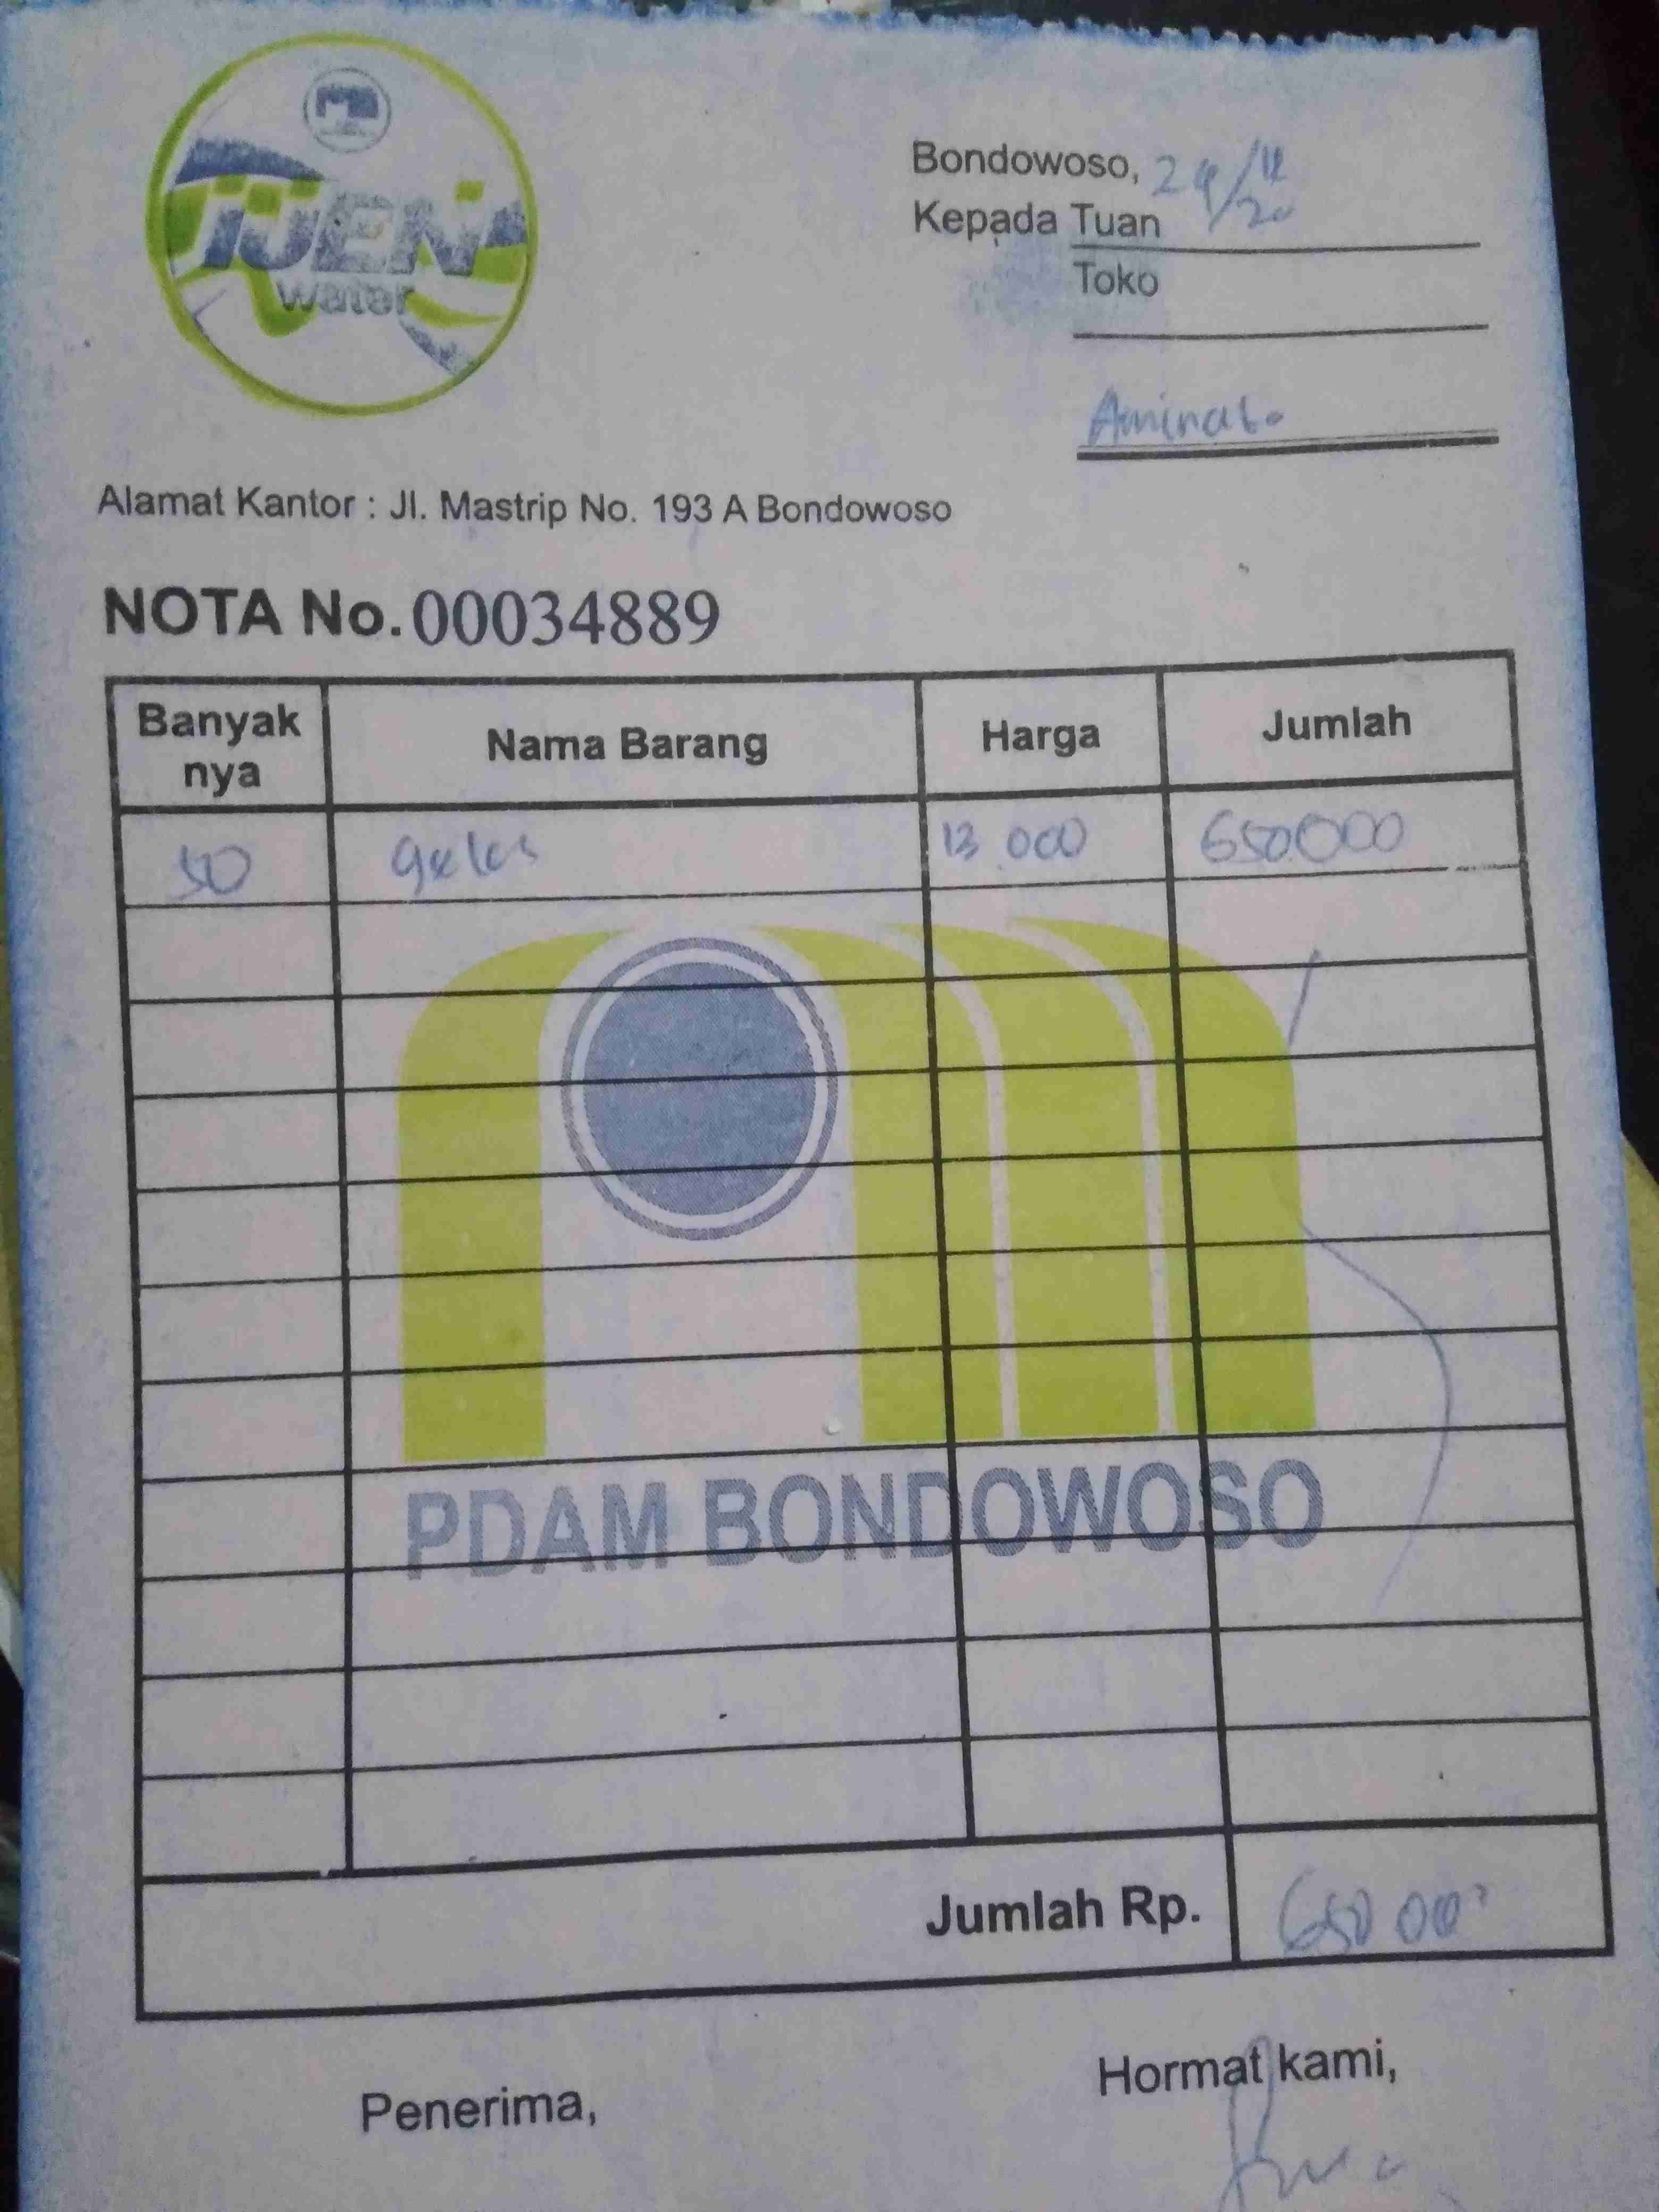 IJEN
water
Bondowoso, 24/12/20
Kepada Tuan
Toko
Alamat Kantor : Jl. Mastrip No. 193 A Bondowoso
NOTA No. 00034889
Banyak nya Nama Barang Harga Jumlah
50 gelas 13.000 650.000
PDAM BONDOWOSO
Jumlah Rp. 650 000
Penerima, Hormat kami,